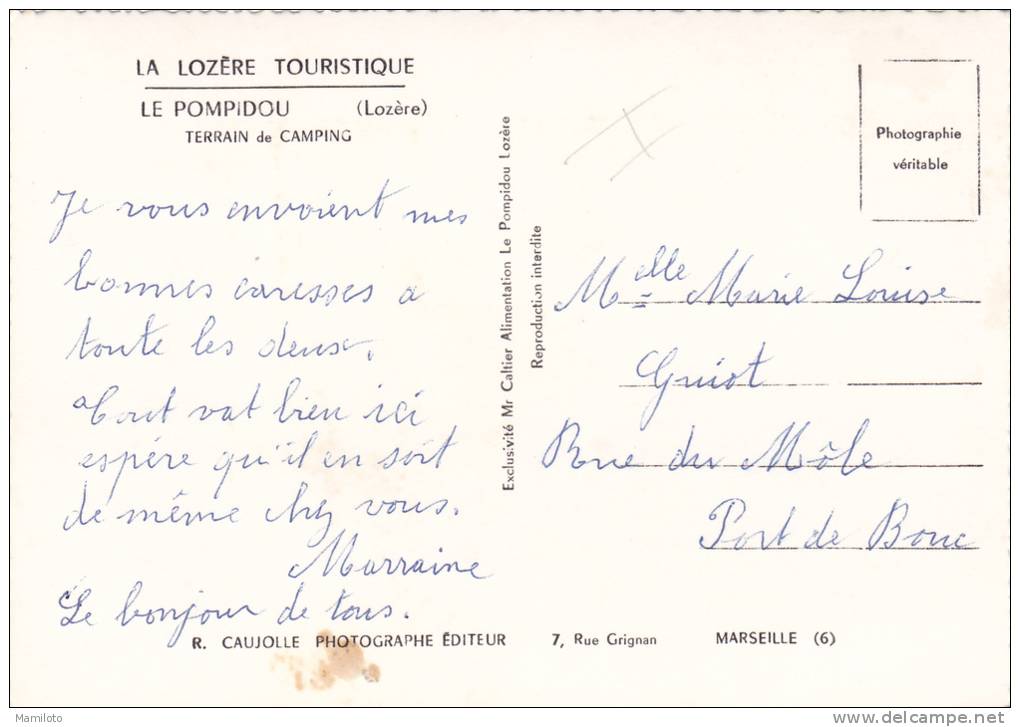 LA LOZÈRE TOURISTIQUE
LE POMPIDOU (Lozère)
TERRAIN de CAMPING
Je vous envoient mes
bonnes caresses a
toute les deux.
Tout vat bien ici
espère qu'il en soit
de même chez vous.
Marraine
Le bonjour de tous.
R. CAUJOLLE PHOTOGRAPHE ÉDITEUR 7, Rue Grignan MARSEILLE (6)
Exclusivité Mr Caltier Alimentation Le Pompidou Lozère
Reproduction interdite
Photographie
véritable
Melle Marie Louise
Guiot
Rue du Môle
Port de Bouc
Mamiloto
delcampe.net